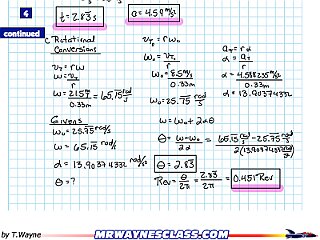 4
continued
t = 2.83s
a = 4.59 m/s
C. Rotational Conversions
v_T = rω
ω = v_T / r
ω = 21.5 m/s / 0.33m = 65.15 rad/s
v_T = rω₀
ω₀ = v_T / r
ω₀ = 8.5 m/s / 0.33m
ω₀ = 25.75 rad/s
a_T = rα
α = a_T / r
α = 4.588235 m/s / 0.33m
α = 13.90374332
Givens
ω₀ = 25.75 rad/s
ω = 65.15 rad/s
α = 13.90374332 rad/s
θ = ?
ω = ω₀ + 2αθ
θ = ω - ω₀ / 2α = 65.15 rad/s - 25.75 rad/s / 2(13.90374332 rad/s)
θ = 2.83
Rev = θ / 2π = 2.83 / 2π = 0.451 Rev
by T.Wayne
MRWAYNESCLASS.COM